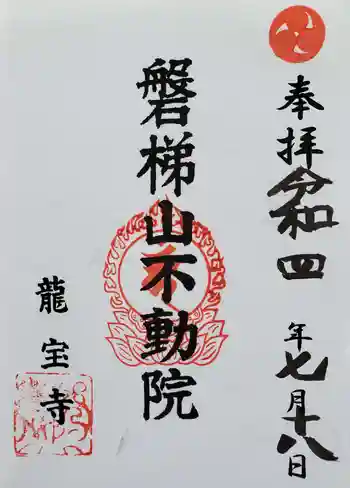 奉拝
令和四年七月十八日
磐梯山不動院
龍宝寺